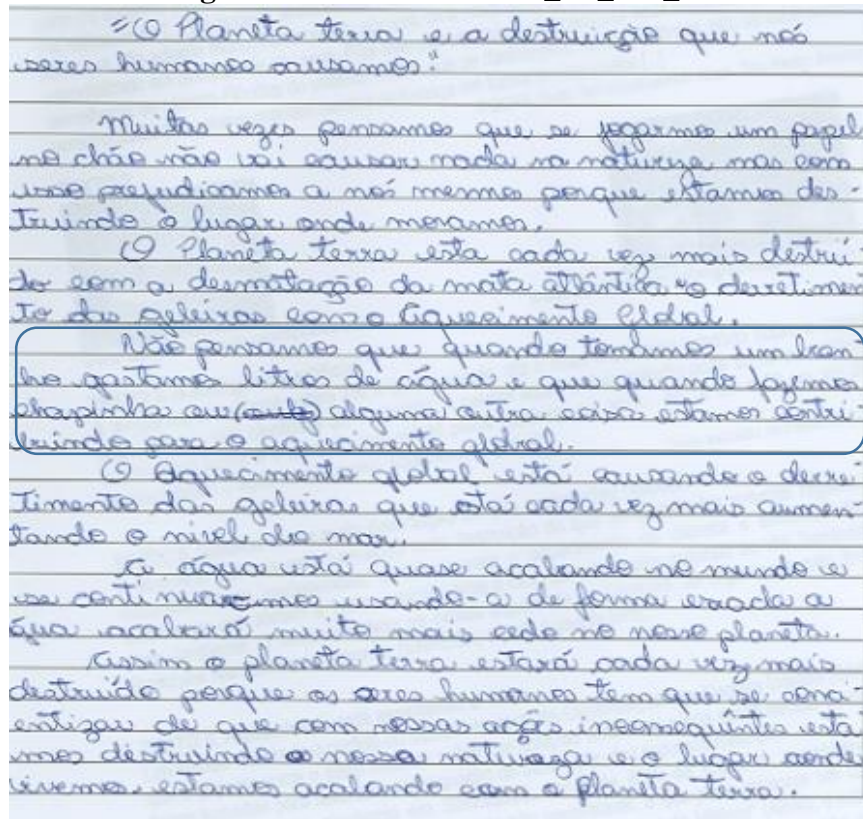 "O Planeta terra e a destruição que nós
seres humanos causamos."
Muitas vezes pensamos que se jogarmos um papel
no chão não vai causar nada na natureza mas com
isso prejudicamos a nós mesmos porque estamos des-
truindo o lugar onde moramos.
O Planeta terra esta cada vez mais destruí-
do com a desmatação da mata atlântica "o derretimen
to das geleiras com o Aquecimento Global.
Não pensamos que quando tomamos um ban
ho gastamos litros de água e que quando fazemos
chapinha ou () alguma outra coisa estamos contri
buindo para o aquecimento global.
O Aquecimento global está causando o derre
timento das geleiras que está cada vez mais aumen
tando o nível do mar.
A água está quase acabando no mundo e
se continuarmos usando-a de forma errada a
água acabará muito mais cedo no nosso planeta.
Assim o planeta terra estará cada vez mais
destruído porque os seres humanos tem que se consi
entizar de que com nossas ações inconsequêntes esta
mos destruindo a nossa natureza e o lugar aonde
vivemos, estamos acabando com o planeta terra.